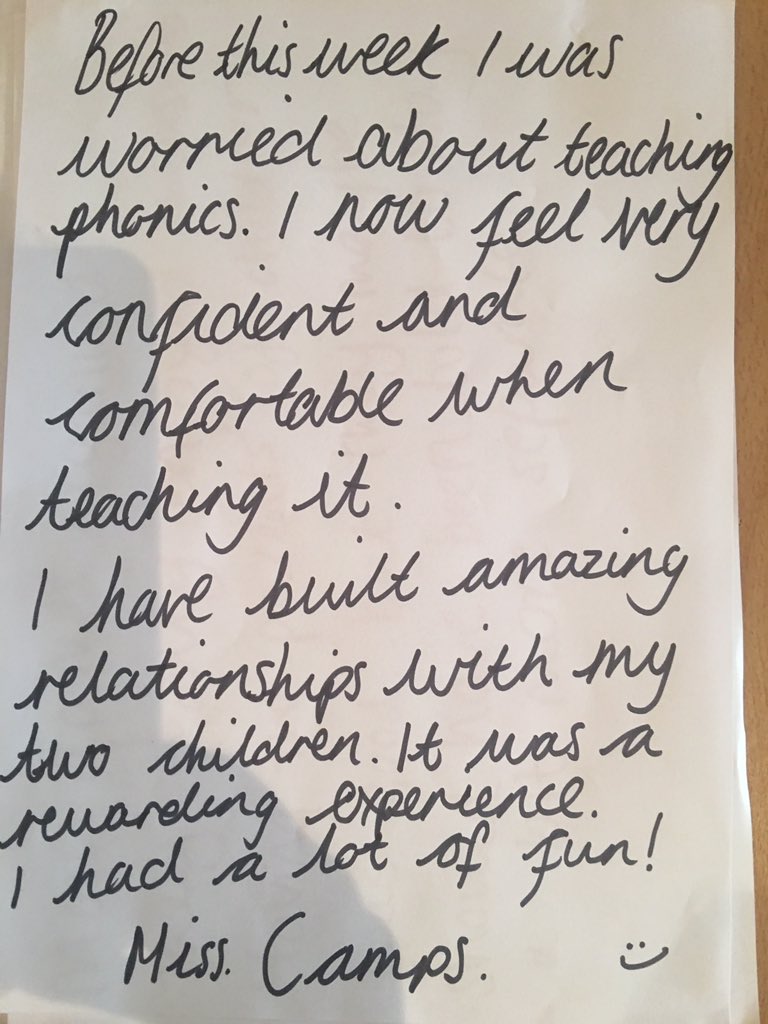 Before this week I was
worried about teaching
phonics. I now feel very
confident and
comfortable when
teaching it.
I have built amazing
relationships with my
two children. It was a
rewarding experience.
I had a lot of fun!
Miss. Camps. :)